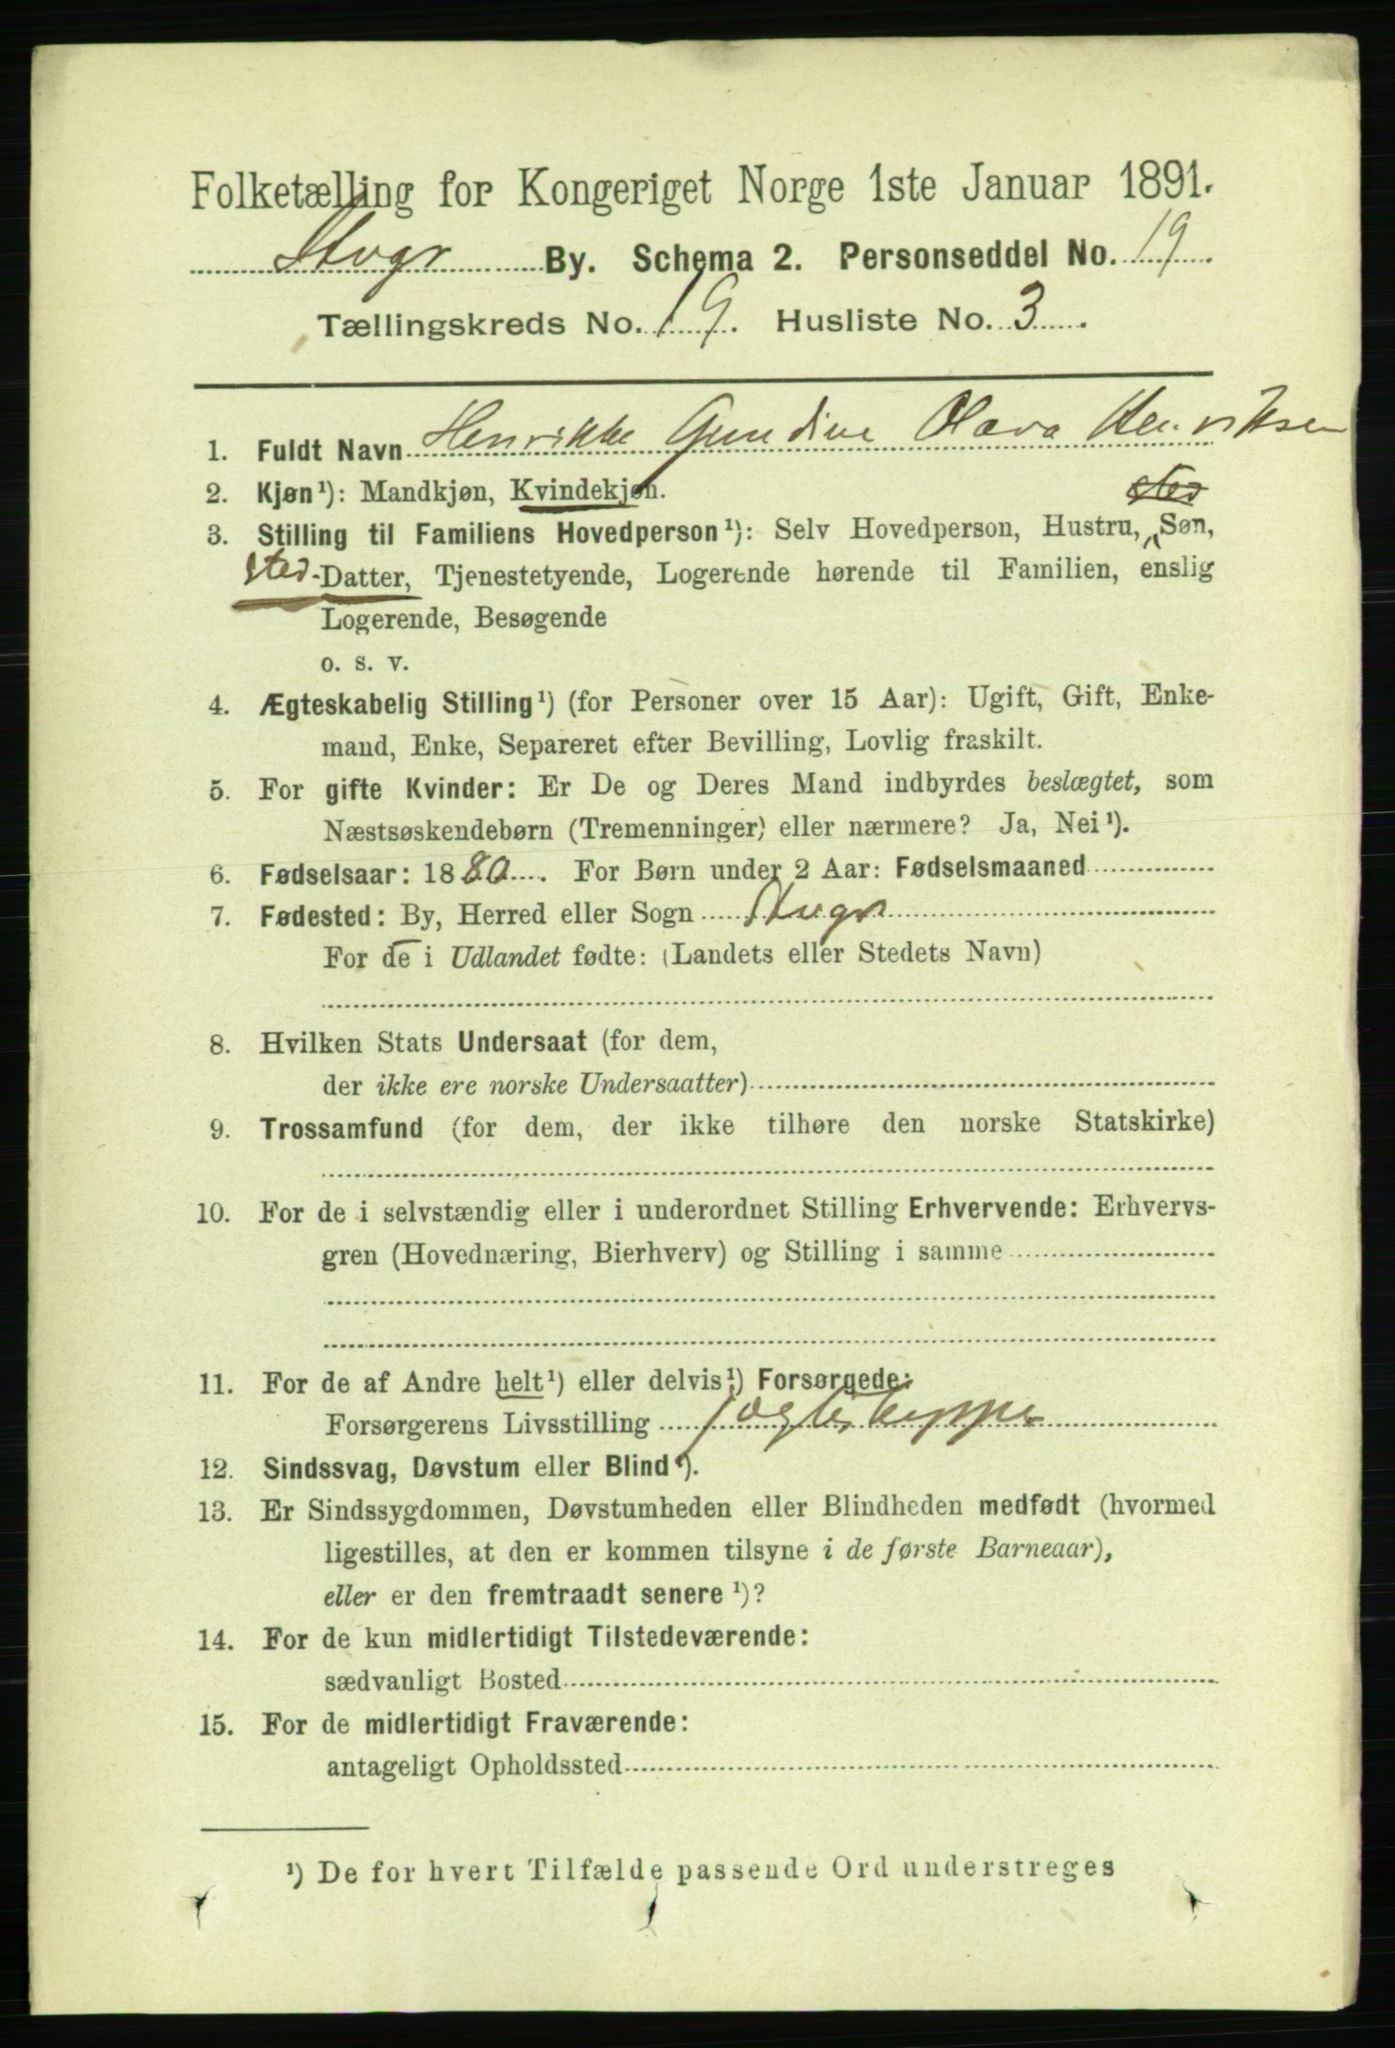 Folketælling for Kongeriget Norge 1ste Januar 1891.
Stvgr By. Schema 2. Personseddel No. 19
Tællingskreds No. 19. Husliste No. 3
1. Fuldt Navn Henrikke Gundine Olava Henriksen
2. Kjøn¹): Mandkjøn, Kvindekjøn.
sted
3. Stilling til Familiens Hovedperson¹): Selv Hovedperson, Hustru, Søn,
sted-Datter, Tjenestetyende, Logerende hørende til Familien, enslig
Logerende, Besøgende
o. s. v.
4. Ægteskabelig Stilling¹) (for Personer over 15 Aar): Ugift, Gift, Enke-
mand, Enke, Separeret efter Bevilling, Lovlig fraskilt.
5. For gifte Kvinder: Er De og Deres Mand indbyrdes beslægtet, som
Næstsøskendebørn (Tremenninger) eller nærmere? Ja, Nei¹).
6. Fødselsaar: 1880. For Børn under 2 Aar: Fødselsmaaned
7. Fødested: By, Herred eller Sogn Stvgr
For de i Udlandet fødte: (Landets eller Stedets Navn)
8. Hvilken Stats Undersaat (for dem,
der ikke ere norske Undersaatter)
9. Trossamfund (for dem, der ikke tilhøre den norske Statskirke)
10. For de i selvstændig eller i underordnet Stilling Erhvervende: Erhvervs-
gren (Hovednæring, Bierhverv) og Stilling i samme
11. For de af Andre helt¹) eller delvis¹) Forsørgede:
Forsørgerens Livsstilling
12. Sindssvag, Døvstum eller Blind¹).
13. Er Sindssygdommen, Døvstumheden eller Blindheden medfødt (hvormed
ligestilles, at den er kommen tilsyne i de første Barneaar),
eller er den fremtraadt senere¹)?
14. For de kun midlertidigt Tilstedeværende:
sædvanligt Bosted
15. For de midlertidigt Fraværende:
antageligt Opholdssted
¹) De for hvert Tilfælde passende Ord understreges